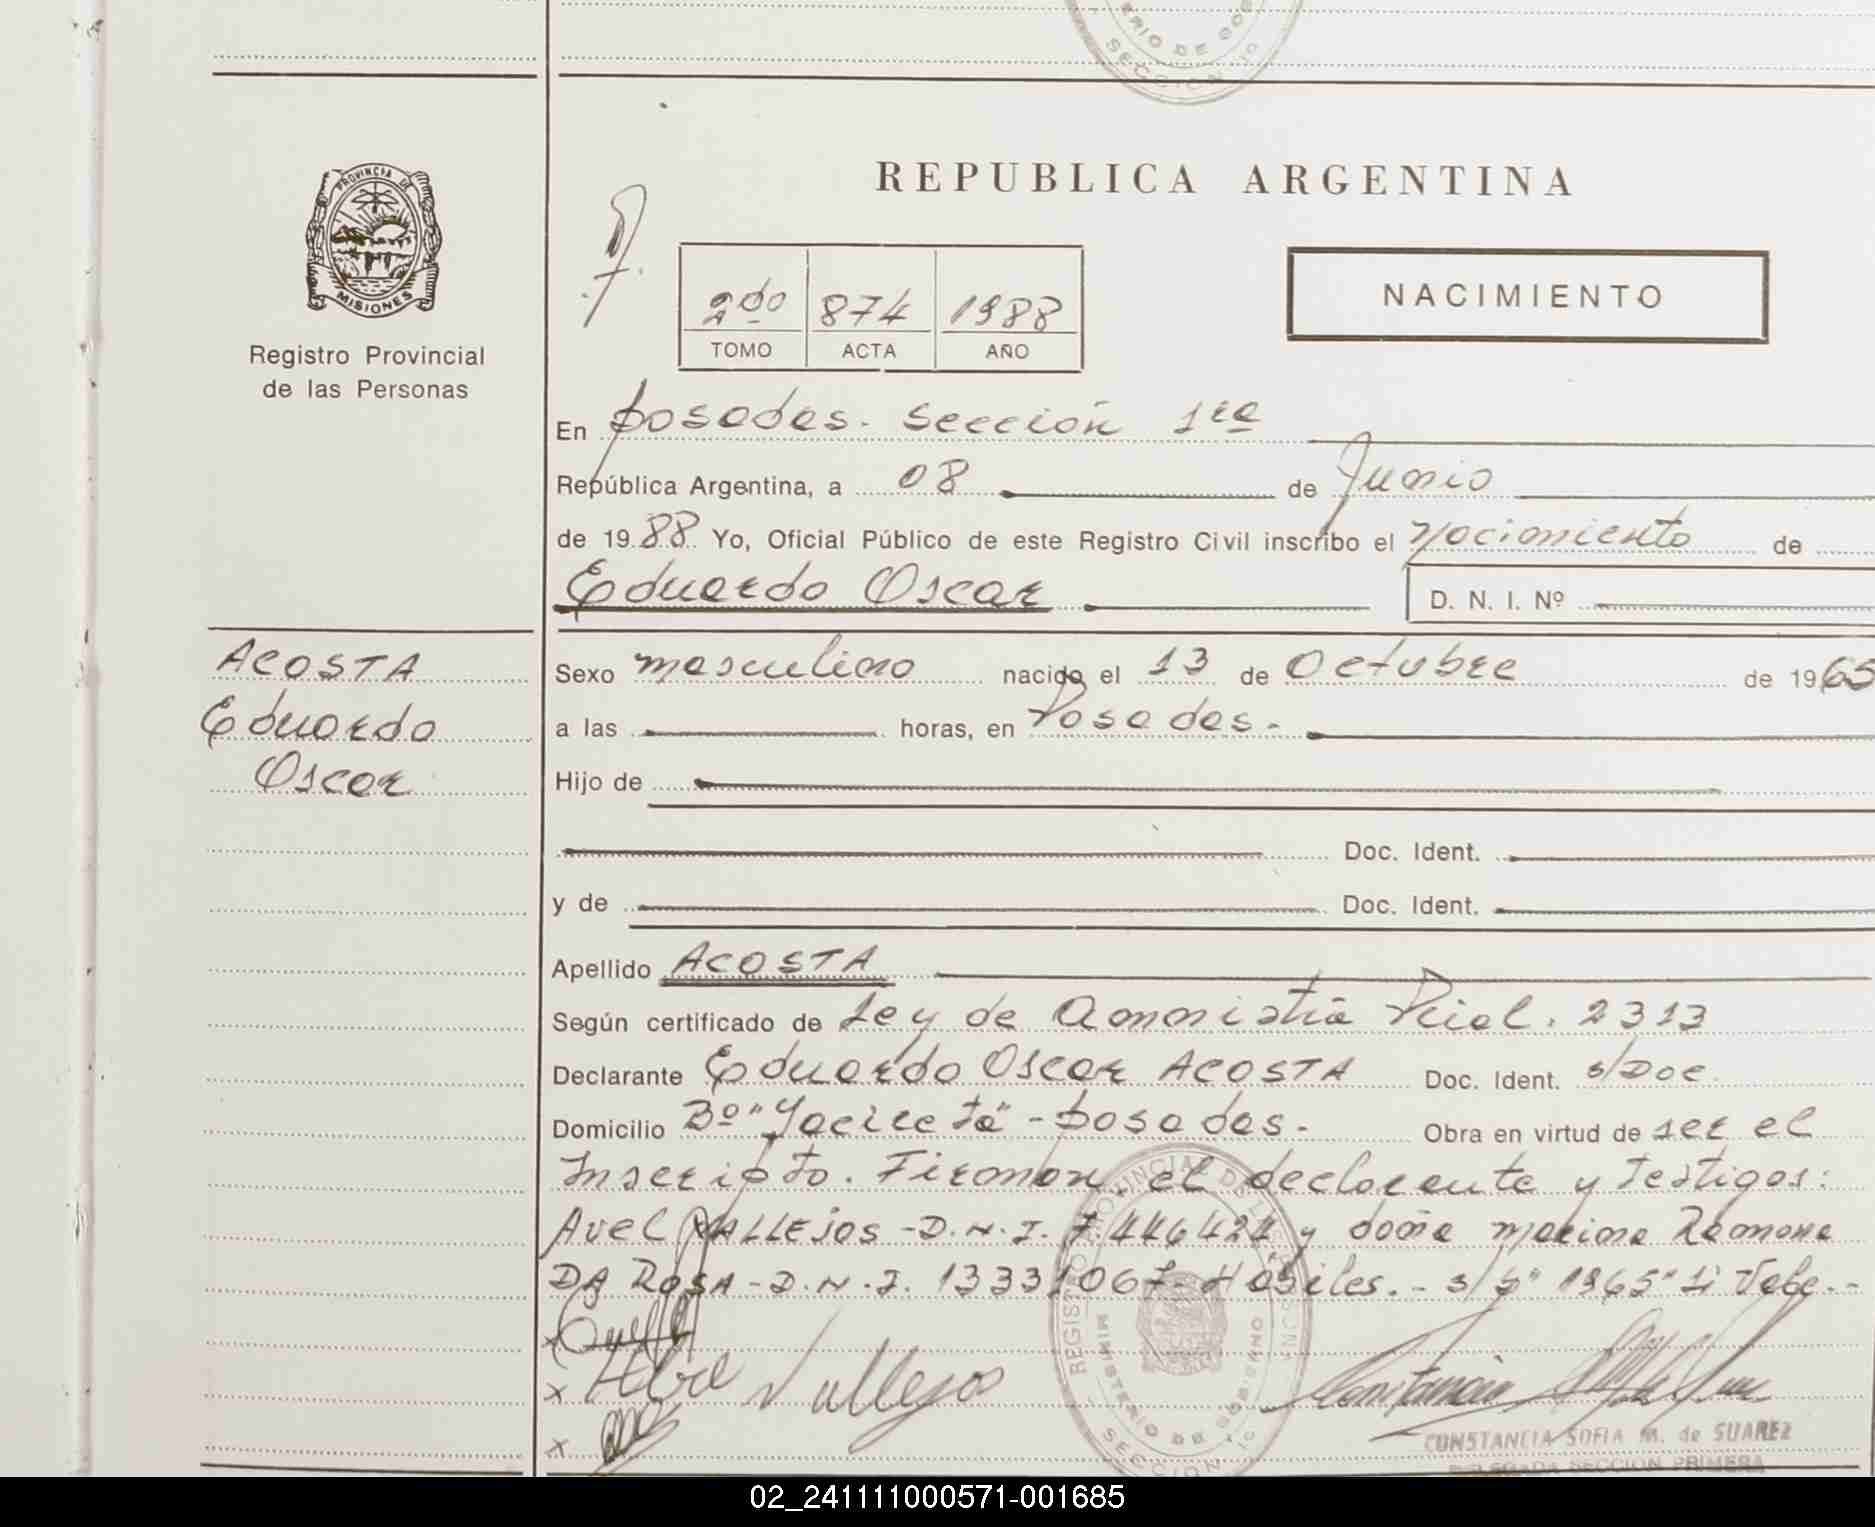 ERIO DE GOB
SECCION 1º
PROVINCIA DE
MISIONES
Registro Provincial
de las Personas
REPUBLICA ARGENTINA
NACIMIENTO
2do 874 1988
TOMO ACTA AÑO
En Posadas. Sección 1ra
República Argentina, a 08 de Junio
de 1988 Yo, Oficial Público de este Registro Civil inscribo el Nacimiento de
Eduardo Oscar D. N. I. Nº
ACOSTA
Eduardo
Oscar
Sexo masculino nacido el 13 de Octubre de 1965
a las horas, en Posadas.-
Hijo de
Doc. Ident.
y de Doc. Ident.
Apellido ACOSTA
Según certificado de Ley de Amnistía Pcial. 2313
Declarante Eduardo Oscar ACOSTA Doc. Ident. s/Doc.
Domicilio Bº "Yacireta" - Posadas.- Obra en virtud de ser el
Inscripto. Firman, el declarante y testigos:
Avel VALLEJOS - D.N.I. 7.446424 y doña Maxima Ramona
DA ROSA - D.N.I. 13331067 - Hábiles.- s/b "1965" Si Vale.-
Vallejos
REGISTRO PROVINCIAL DE LAS PERSONAS
MINISTERIO DE GOBIERNO
SECCION 1º
CONSTANCIA SOFIA M. de SUAREZ
DELEGADA SECCION PRIMERA
02_241111000571-001685